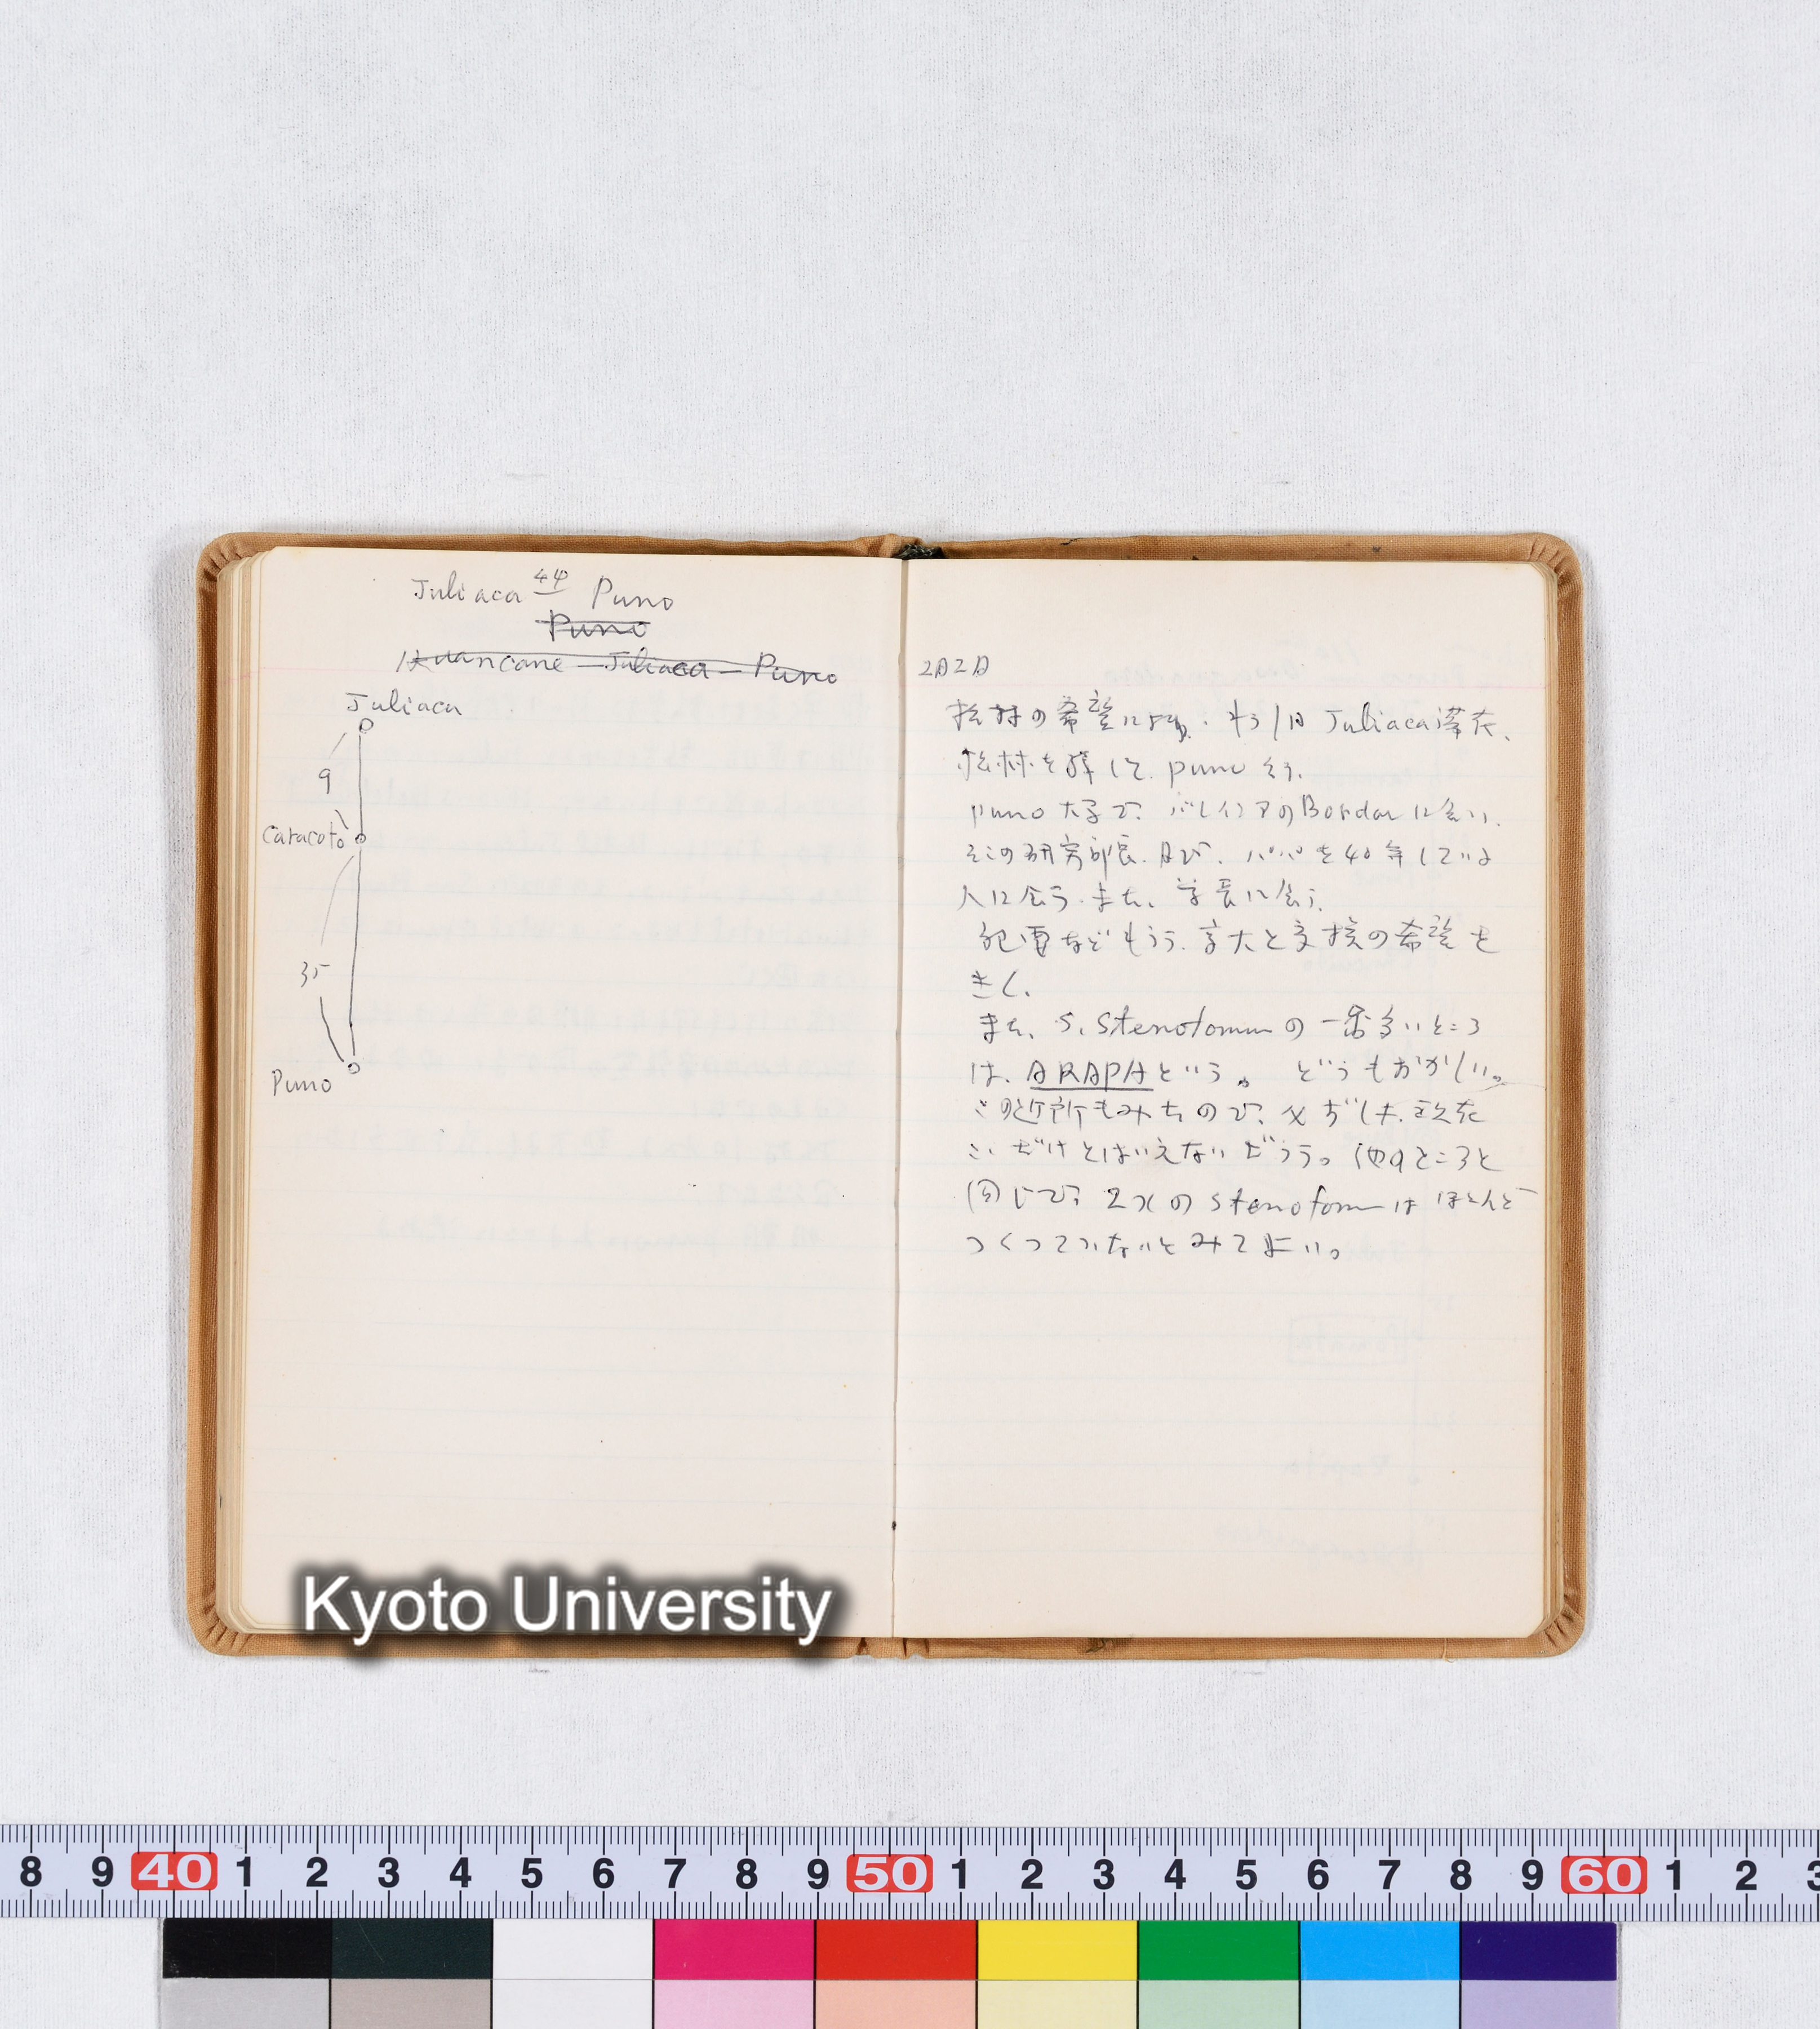 Juliaca 44 Puno
Puno
Huancane - Juliaca - Puno
Juliaca
9
Caracoto
35
Puno
2月2日
松村の希望により、もう1日 Juliaca滞在、
松林を残して、Puno行。
Puno大学で、バレイショのBordaに会い、
そこの研究部長、及び、パパを40年している
人に会う。また、学長に会う。
紀要などもらう。京大と交換の希望を
きく。
また、S. Stenotomumの一番多いところ
は、ARAPAという。どうもおかしい。
この近所もみたので、
こゝだけとはいえないだろう。他のところと
同じで、2xのstenotomumはほとんど
つくっていないとみてよい。
Kyoto University
8 9 40 1 2 3 4 5 6 7 8 9 50 1 2 3 4 5 6 7 8 9 60 1 2 3